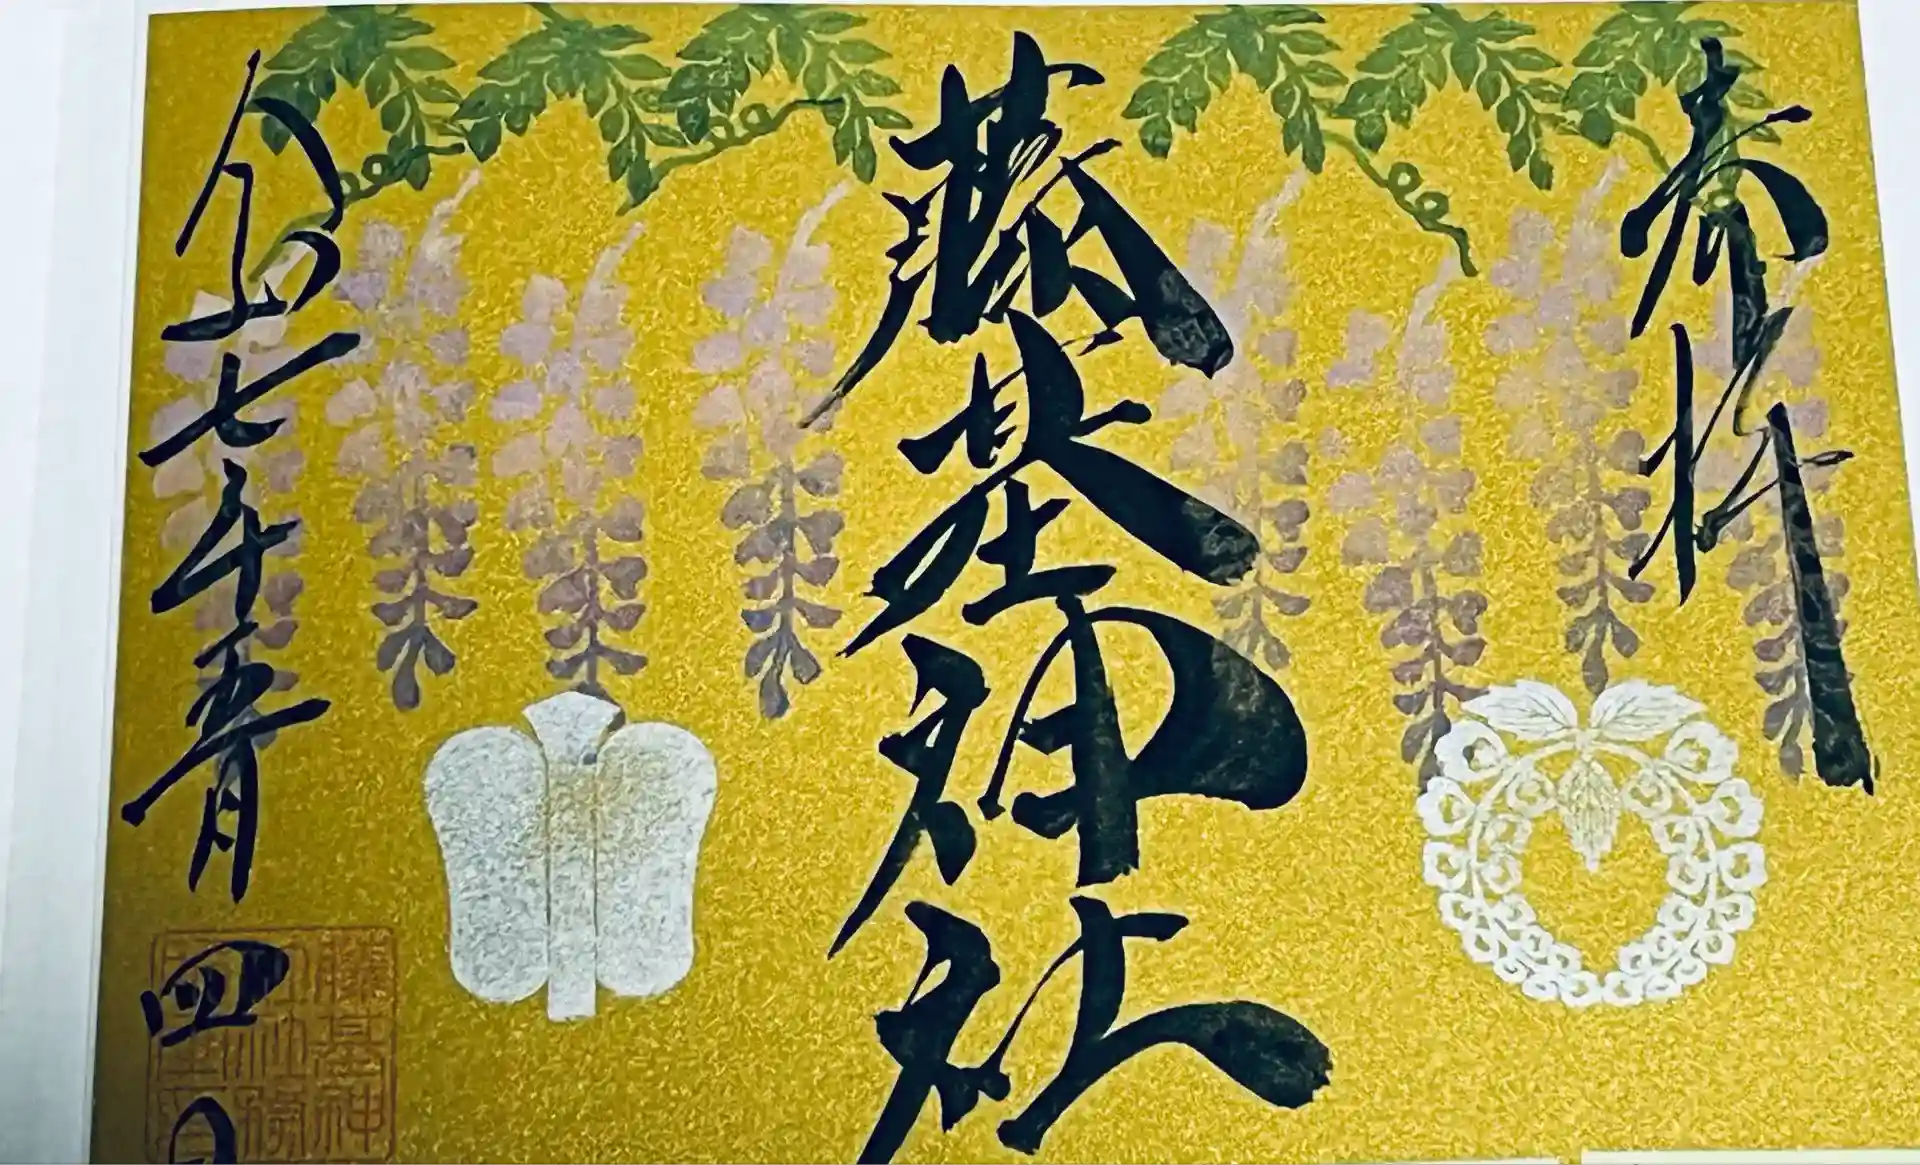 奉拝
藤基神社
令和七年五月四日
藤基神
社社務